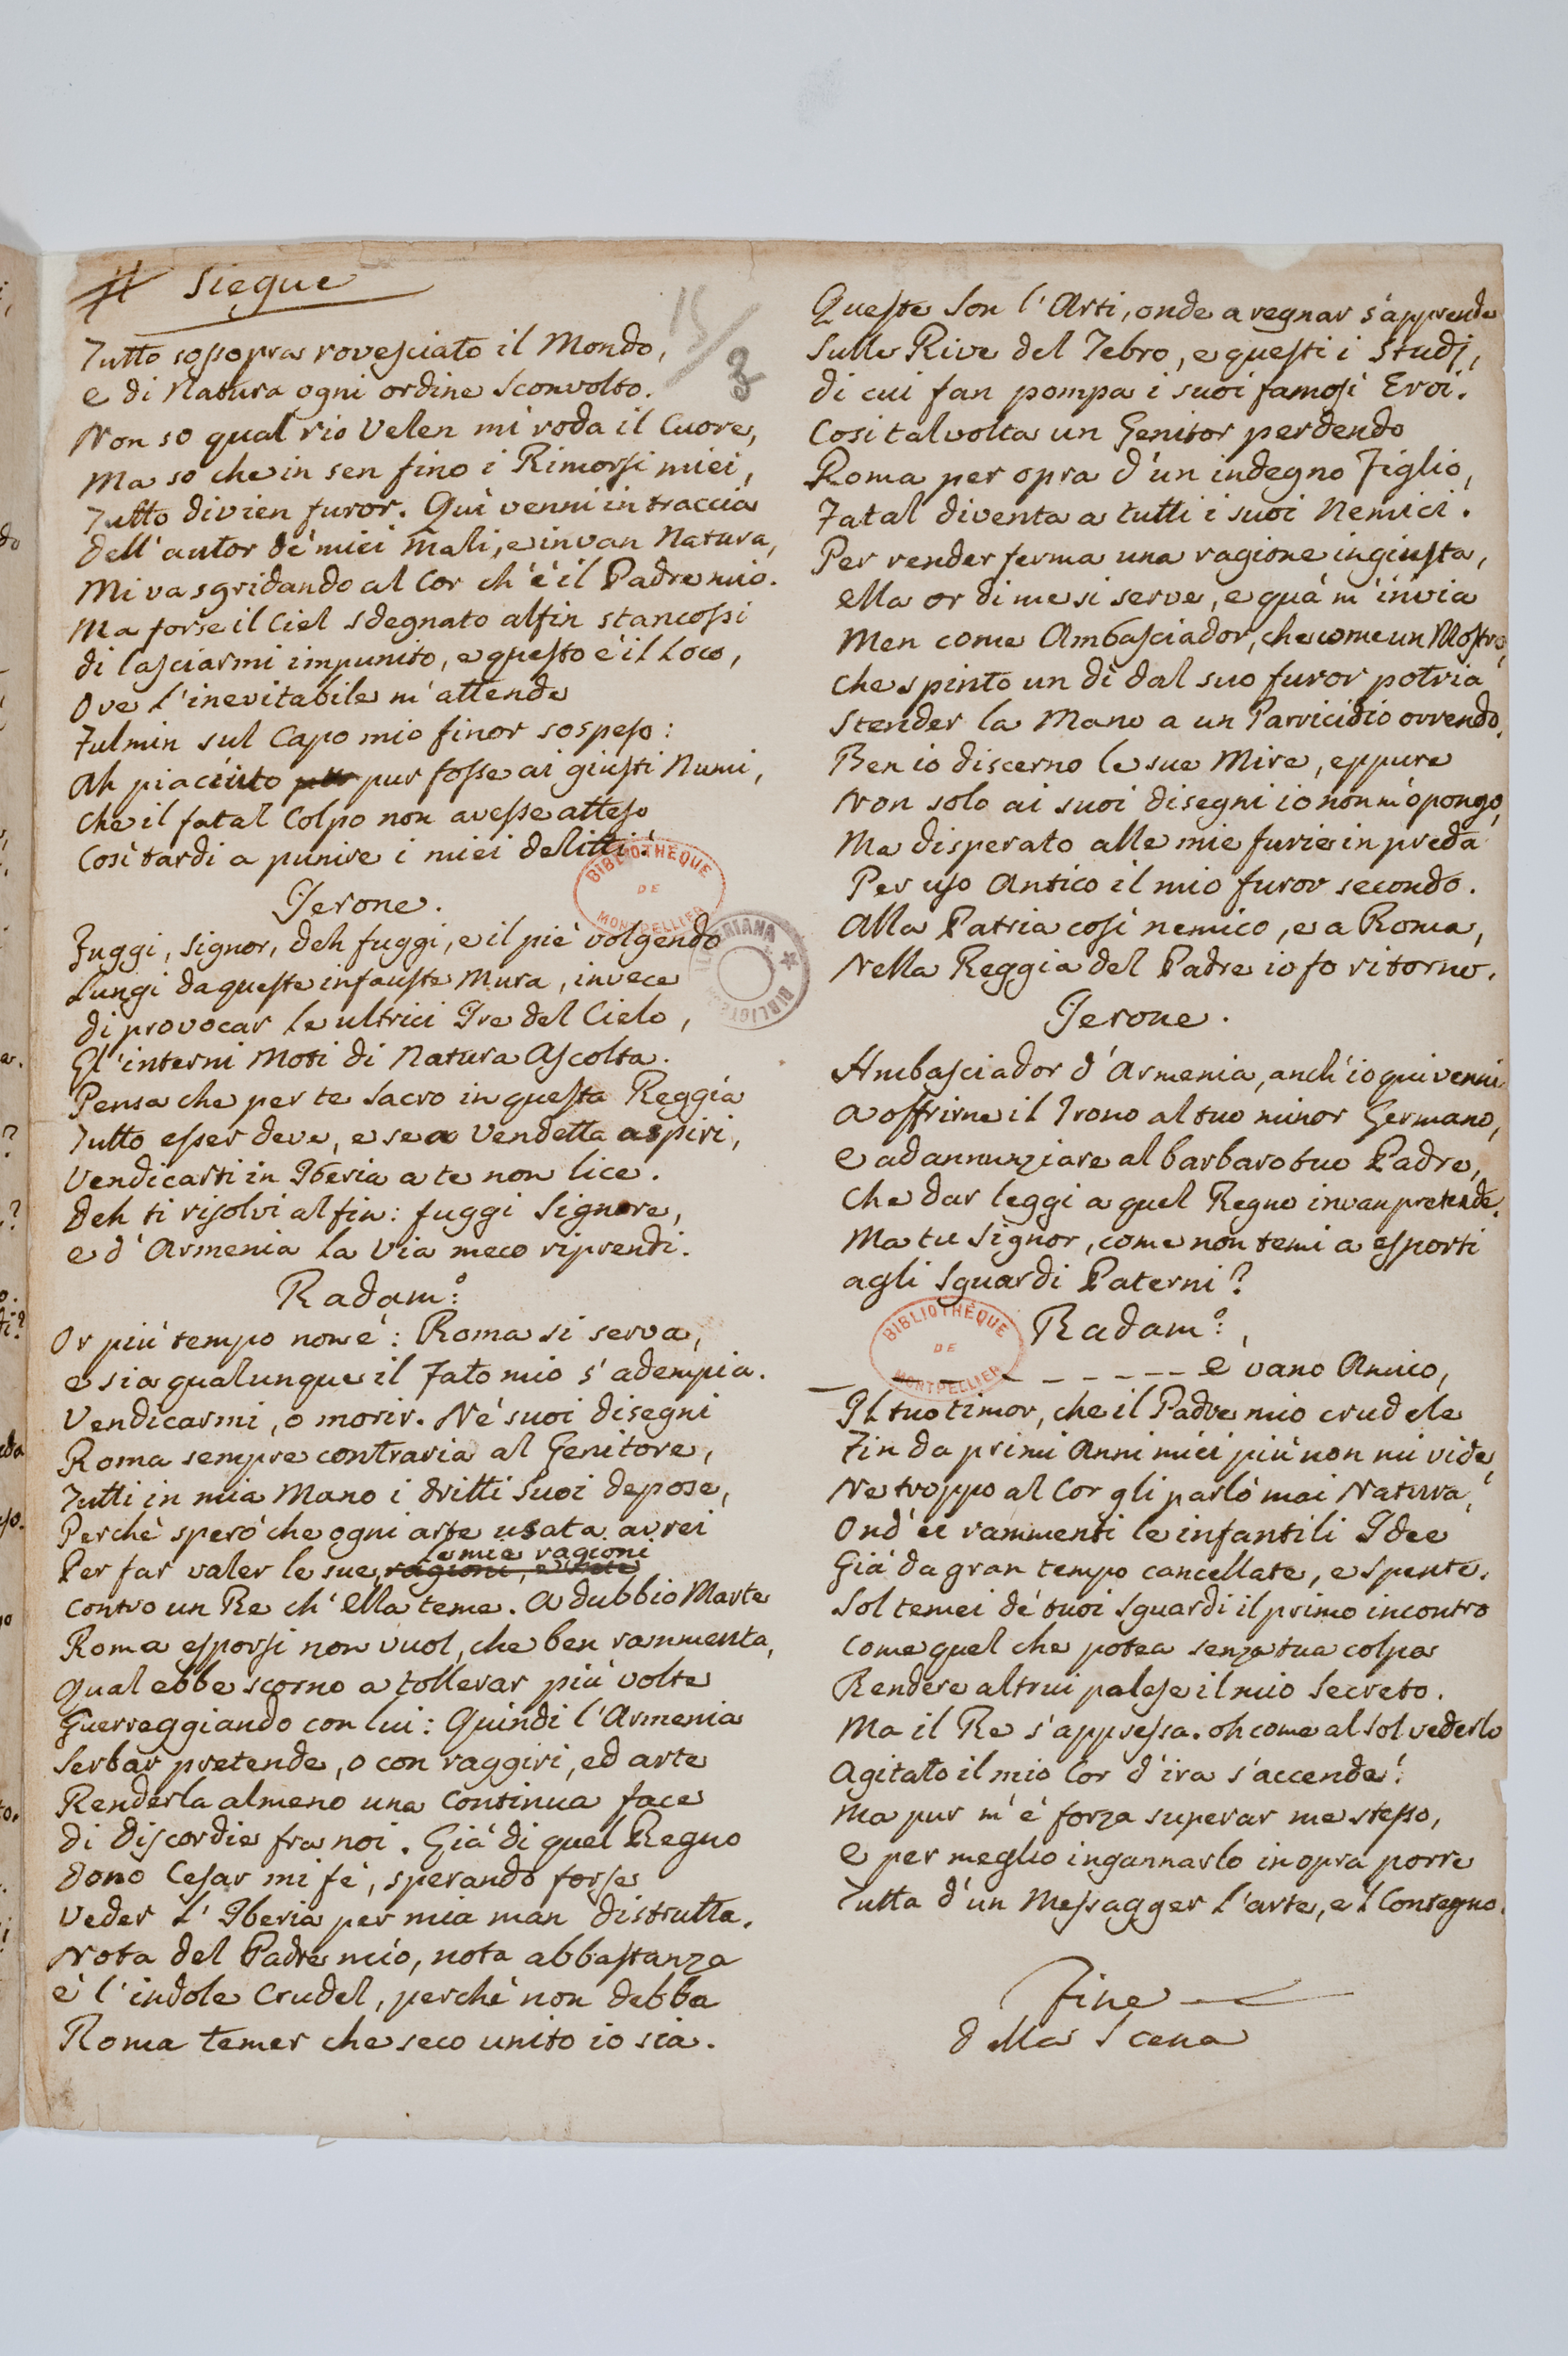 # Siegue
15/3
Tutto sossopra rovesciato il Mondo,
e di Natura ogni ordine sconvolto.
Non so qual rio Velen mi roda il Cuore,
Ma so che in sen fino i Rimorsi miei,
Tutto divien furor. Quì venni in traccia
dell'autor de' miei mali, e invan Natura,
Mi va sgridando al Cor ch'è il Padre mio.
Ma forse il Ciel sdegnato alfin stancossi
di lasciarmi impunito, e questo è il Loco,
Ove l'inevitabile m'attende
Fulmin sul Capo mio finor sospeso:
Ah piaciuto pur fosse ai giusti Numi,
che il fatal Colpo non avesse atteso
Così tardi a punire i miei delitti!
Jerone.
Fuggi, Signor, deh fuggi, e il piè volgendo
Lungi da queste infauste Mura, invece
di provocar le ultrici Ire del Cielo,
Gl'interni Moti di Natura Ascolta.
Pensa che per te Sacro in questa Reggia
Tutto esser deve, e se a Vendetta aspiri,
Vendicarti in Iberia a te non lice.
Deh ti risolvi alfin: fuggi Signore,
e d'Armenia la Via meco riprendi.
Radam:º
Or più tempo non è: Roma si serva,
e sia qualunque il Fato mio s'adempia.
Vendicarmi, o morir. Né suoi disegni
Roma sempre contraria al Genitore,
Tutti in mia Mano i dritti Suoi depose,
Perchè sperò che ogni arte usata avrei
e mie ragioni
Per far valer le sue, ragioni,
contro un Re ch'Ella teme. A dubbio Marte
Roma esporsi non vuol, che ben rammenta,
Qual ebbe scorno a tollerar più volte
Guerreggiando con lui: Quindi l'Armenia
Serbar pretende, o con raggiri, ed arte
Renderla almeno una continua face
di discordie fra noi. Già di quel Regno
dono Cesar mi fè, sperando forse
Veder l'Iberia per mia man distrutta.
Nota del Padre mio, nota abbastanza
è l'indole Crudel, perchè non debba
Roma temer che seco unito io sia.
Queste Son l'Arti, onde a regnar s'apprende
Sulle Rive del Tebro, e questi i Studj,
di cui fan pompa i suoi famosi Eroi.
Così talvolta un Genitor perdendo
Roma per opra d'un indegno Figlio,
Fatal diventa a tutti i suoi Nemici.
Per render ferma una ragione ingiusta,
ella or di me si serve, e quà m'invia
Men come Ambasciador, che come un Mostro,
che spinto un dì dal suo furor potria
Stender la Mano a un Parricidio orrendo.
Ben io discerno le sue Mire, eppure
Non solo ai suoi disegni io non m'opongo,
Ma disperato alle mie furie in preda
Per uso Antico il mio furor secondo.
Alla Patria così nemico, e a Roma,
Nella Reggia del Padre io fo ritorno.
Jerone.
Ambasciador d'Armenia, anch'io qui venni
a offrirne il Trono al tuo minor Germano,
e ad annunziare al barbaro tuo Padre,
Che dar leggi a quel Regno invan pretende.
Ma tu Signor, come non temi a esporti
agli Sguardi Paterni?
Radam:º
_ _ _ _ _ _ _ _ è vano Amico,
Il tuo timor, che il Padre mio crudele
Fin da primi Anni miei più non mi vide,
Ne troppo al Cor gli parlò mai Natura,
Ond'ei rammenti le infantili Idee
Già da gran tempo cancellate, e spente.
Sol temei de' tuoi Sguardi il primo incontro
come quel che potea senza tua colpa
Rendere altrui palese il mio Secreto.
Ma il Re s'appressa. oh come al sol vederlo
Agitato il mio Cor d'ira s'accende!
Ma pur m'è forza superar me stesso,
e per meglio ingannarlo in opra porre
Tutta d'un Messagger l'arte, e 'l Contegno.
Fine
della Scena
BIBLIOTHÈQUE
DE
MONTPELLIER
BIBLIOTHÈQUE
DE
MONTPELLIER